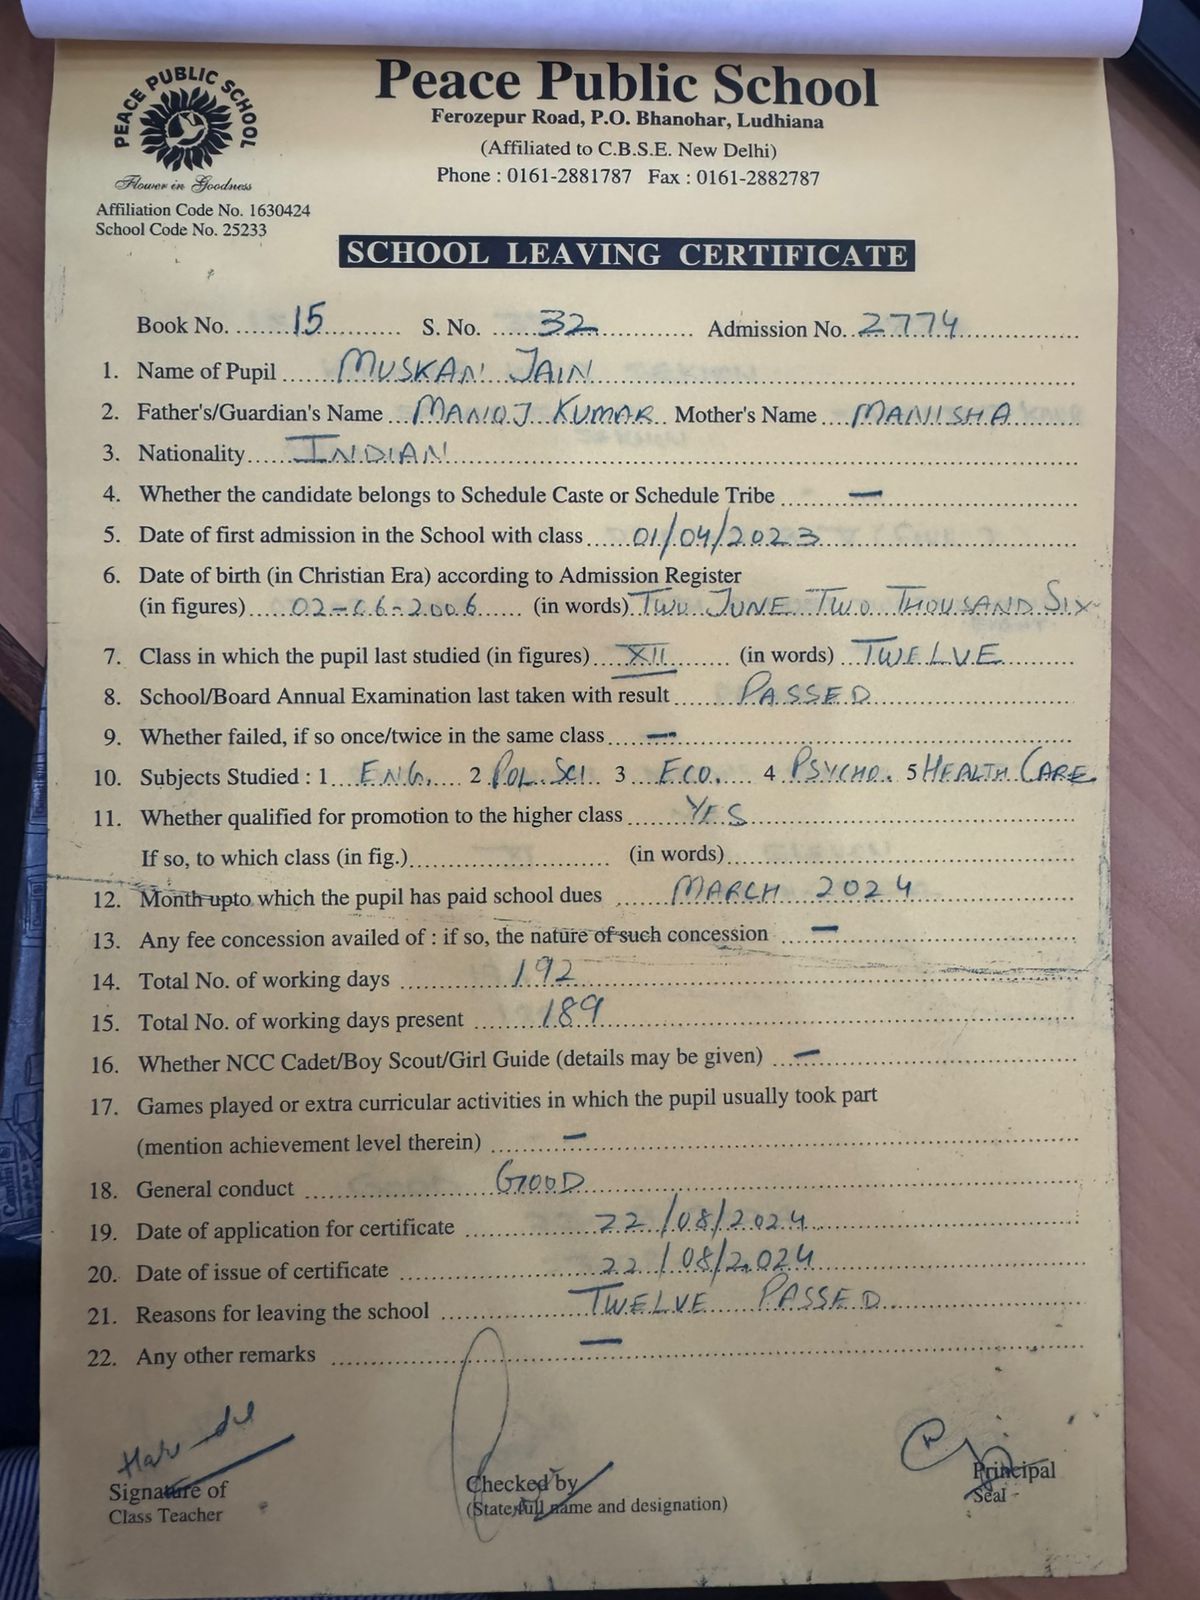 PEACE PUBLIC SCHOOL
Flower in Goodness
Affiliation Code No. 1630424
School Code No. 25233
Peace Public School
Ferozepur Road, P.O. Bhanohar, Ludhiana
(Affiliated to C.B.S.E. New Delhi)
Phone : 0161-2881787 Fax : 0161-2882787
SCHOOL LEAVING CERTIFICATE
Book No. 15 S. No. 32 Admission No. 2774
1. Name of Pupil MUSKAN JAIN
2. Father's/Guardian's Name MANOJ KUMAR Mother's Name MANISHA
3. Nationality INDIAN
4. Whether the candidate belongs to Schedule Caste or Schedule Tribe —
5. Date of first admission in the School with class 01/04/2023
6. Date of birth (in Christian Era) according to Admission Register
(in figures) 02-06-2006 (in words) TWO JUNE TWO THOUSAND SIX
7. Class in which the pupil last studied (in figures) XII (in words) TWELVE
8. School/Board Annual Examination last taken with result PASSED
9. Whether failed, if so once/twice in the same class —
10. Subjects Studied : 1 ENG. 2 POL. SCI. 3 ECO. 4 PSYCHO. 5 HEALTH CARE
11. Whether qualified for promotion to the higher class YES
If so, to which class (in fig.) (in words)
12. Month upto which the pupil has paid school dues MARCH 2024
13. Any fee concession availed of : if so, the nature of such concession —
14. Total No. of working days 192
15. Total No. of working days present 189
16. Whether NCC Cadet/Boy Scout/Girl Guide (details may be given) —
17. Games played or extra curricular activities in which the pupil usually took part
(mention achievement level therein) —
18. General conduct GOOD
19. Date of application for certificate 22/08/2024
20. Date of issue of certificate 22/08/2024
21. Reasons for leaving the school TWELVE PASSED
22. Any other remarks —
Signature of
Class Teacher
Checked by
(State full name and designation)
Principal
Seal